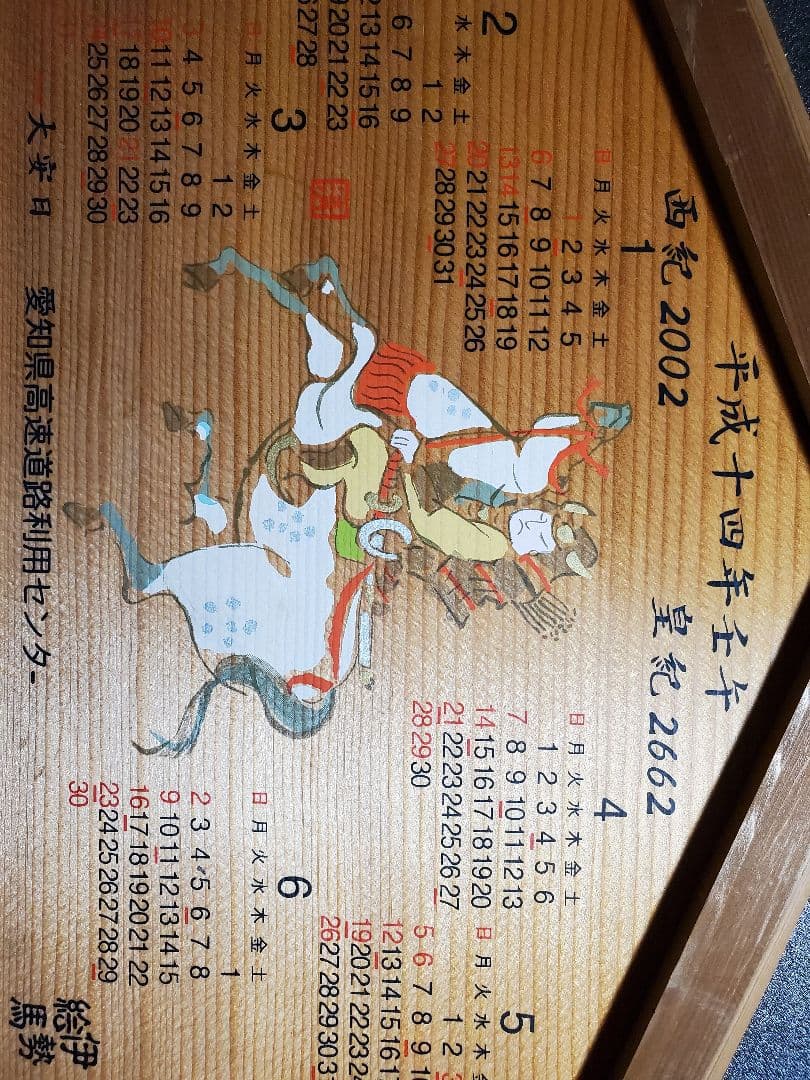 平成十四年壬午
西紀2002 皇紀2662
1
日 月 火 水 木 金 土
1 2 3 4 5
6 7 8 9 10 11 12
13 14 15 16 17 18 19
20 21 22 23 24 25 26
27 28 29 30 31
2
水 木 金 土
1 2
6 7 8 9
13 14 15 16
20 21 22 23
27 28
3
日 月 火 水 木 金 土
1 2
3 4 5 6 7 8 9
10 11 12 13 14 15 16
17 18 19 20 21 22 23
25 26 27 28 29 30
4
日 月 火 水 木 金 土
1 2 3 4 5 6
7 8 9 10 11 12 13
14 15 16 17 18 19 20
21 22 23 24 25 26 27
28 29 30
5
日 月 火 水 木 金
1 2 3
5 6 7 8 9 10
12 13 14 15 16 17
19 20 21 22 23 24
26 27 28 29 30
6
日 月 火 水 木 金 土
1
2 3 4 5 6 7 8
9 10 11 12 13 14 15
16 17 18 19 20 21 22
23 24 25 26 27 28 29
30
大安日 愛知県高速道路利用センター
伊勢
絵馬